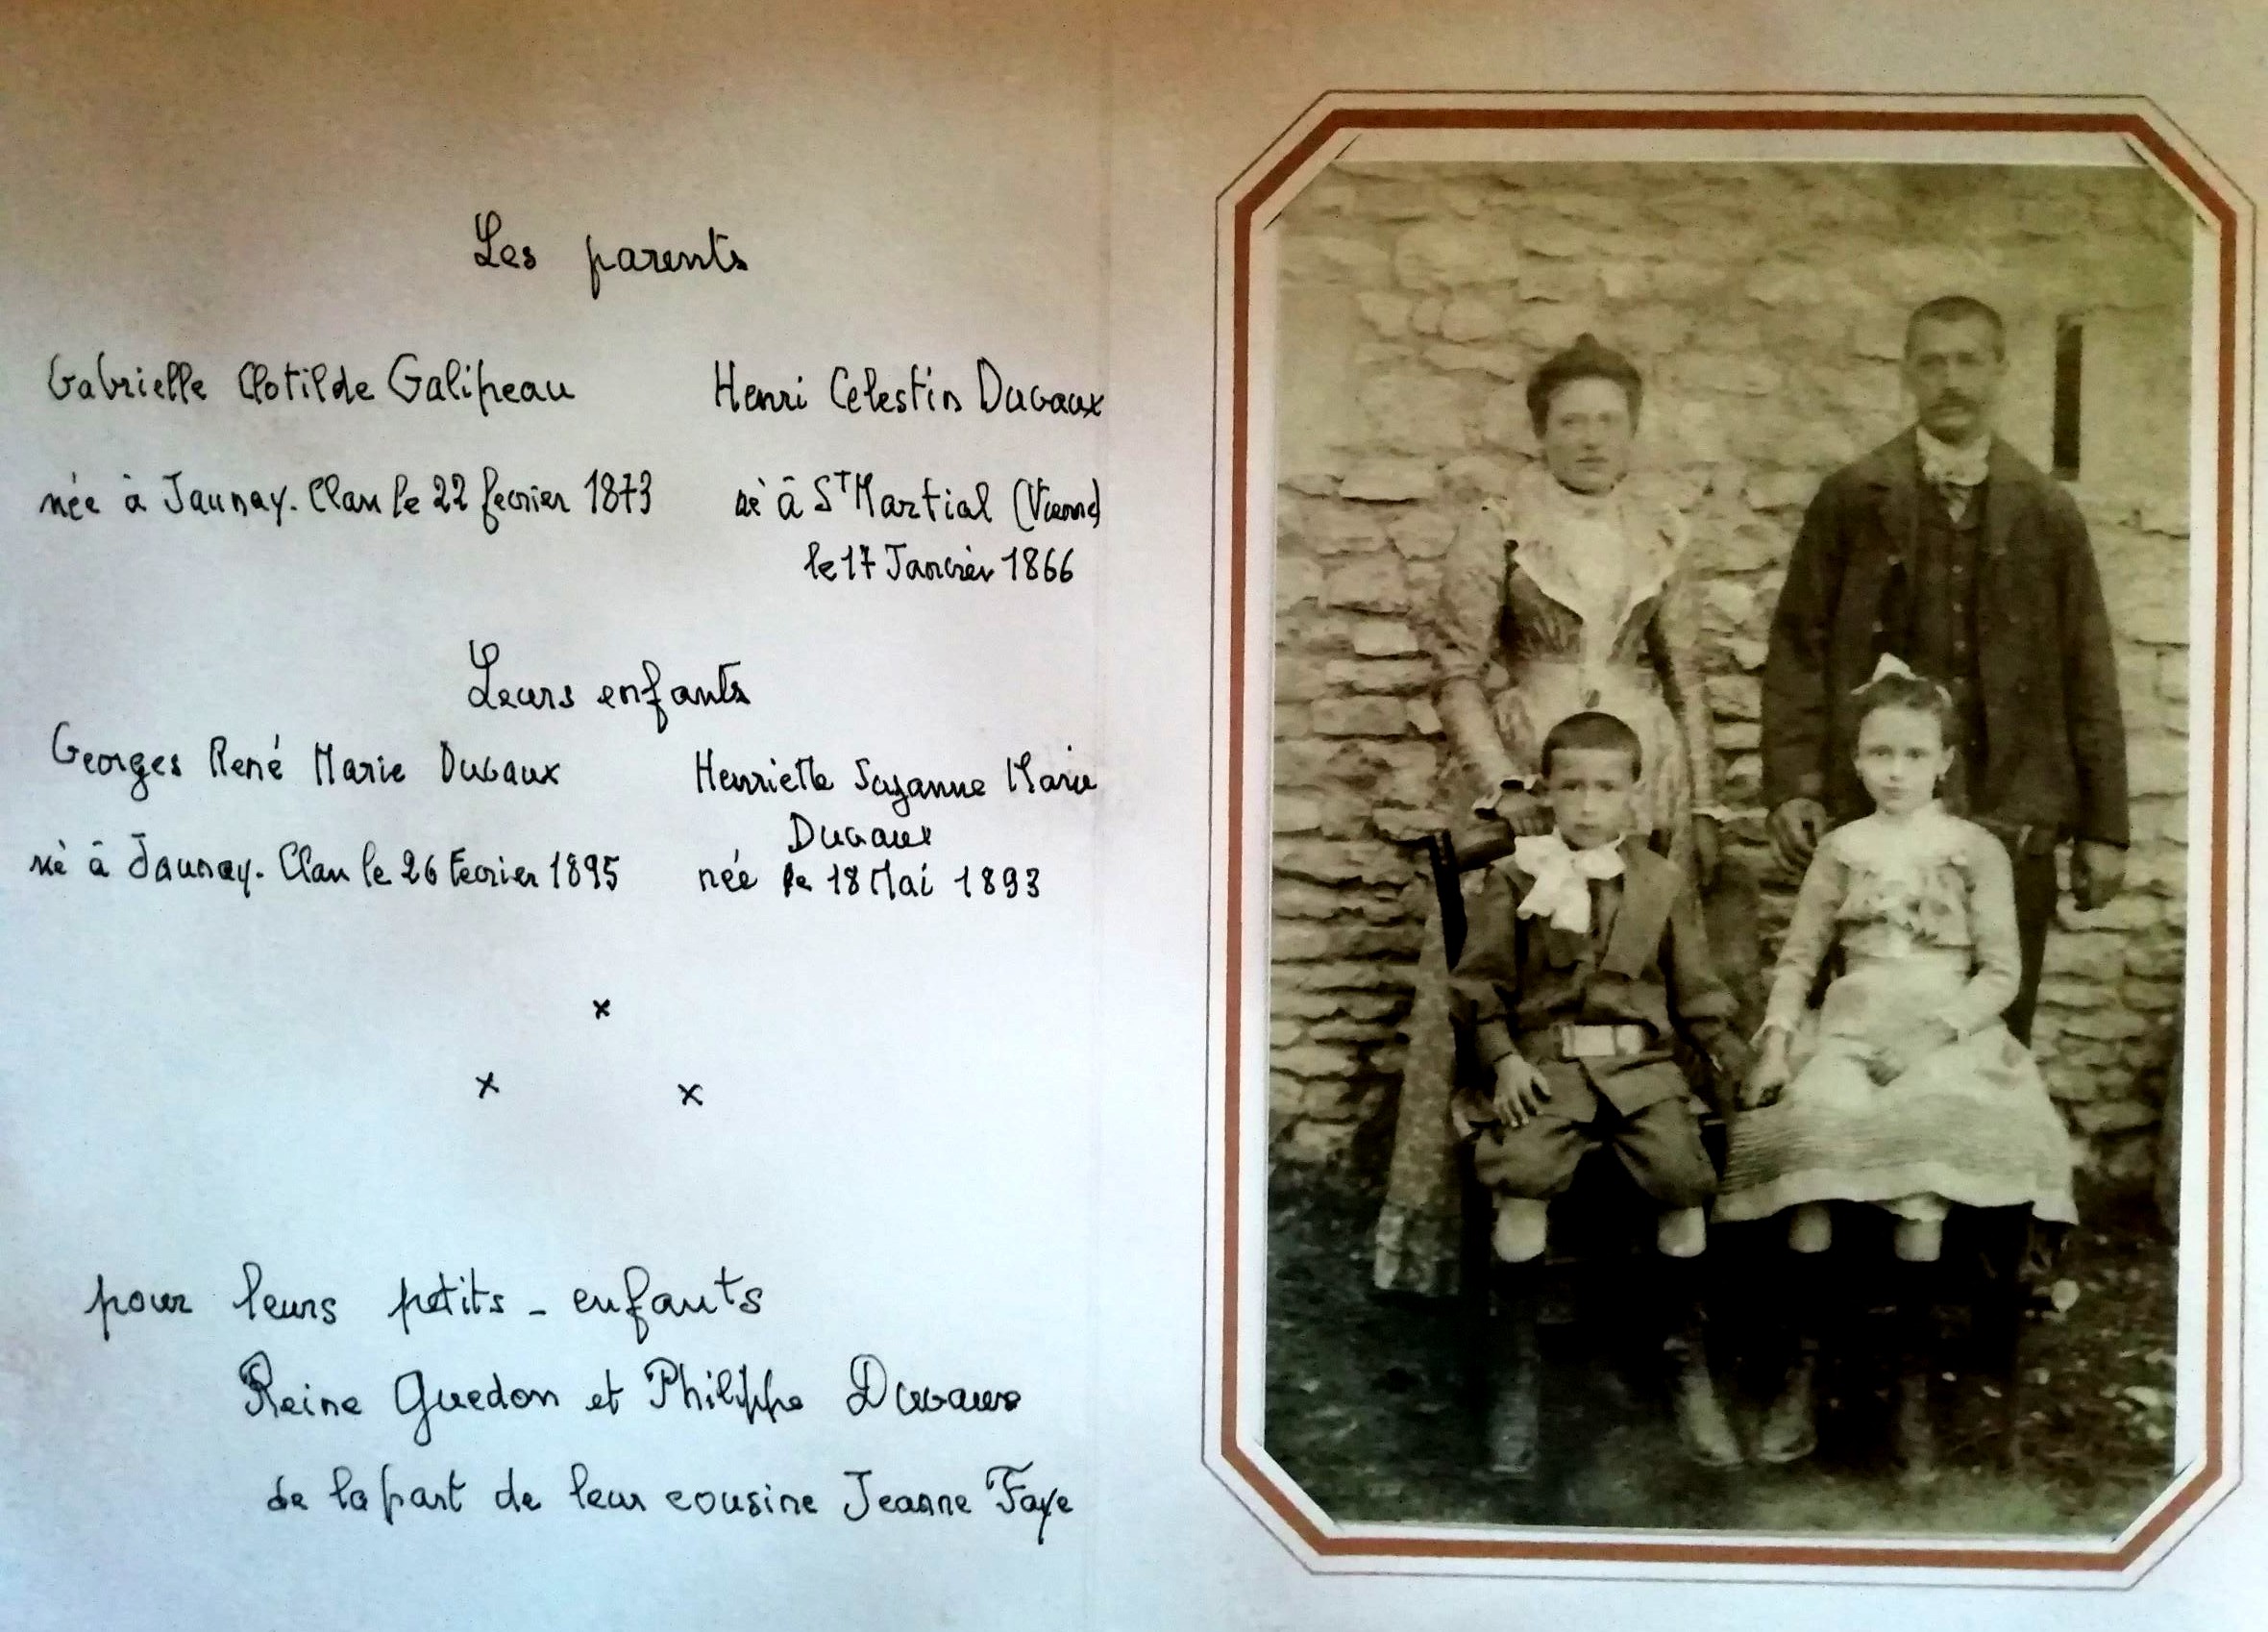 Les parents
Gabrielle Clotilde Galipeau Henri Celestin Duvaux
née à Jaunay-Clan le 22 fevrier 1873 né à St Martial (Vienne)
le 17 Janvier 1866
Leurs enfants
Georges René Marie Duvaux Henriette Suzanne Marie
Duvaux
né à Jaunay-Clan le 26 Fevrier 1895 née le 18 Mai 1893
x
x x
pour leurs petits-enfants
Reine Guedon et Philippe Duvaux
de la part de leur cousine Jeanne Faye